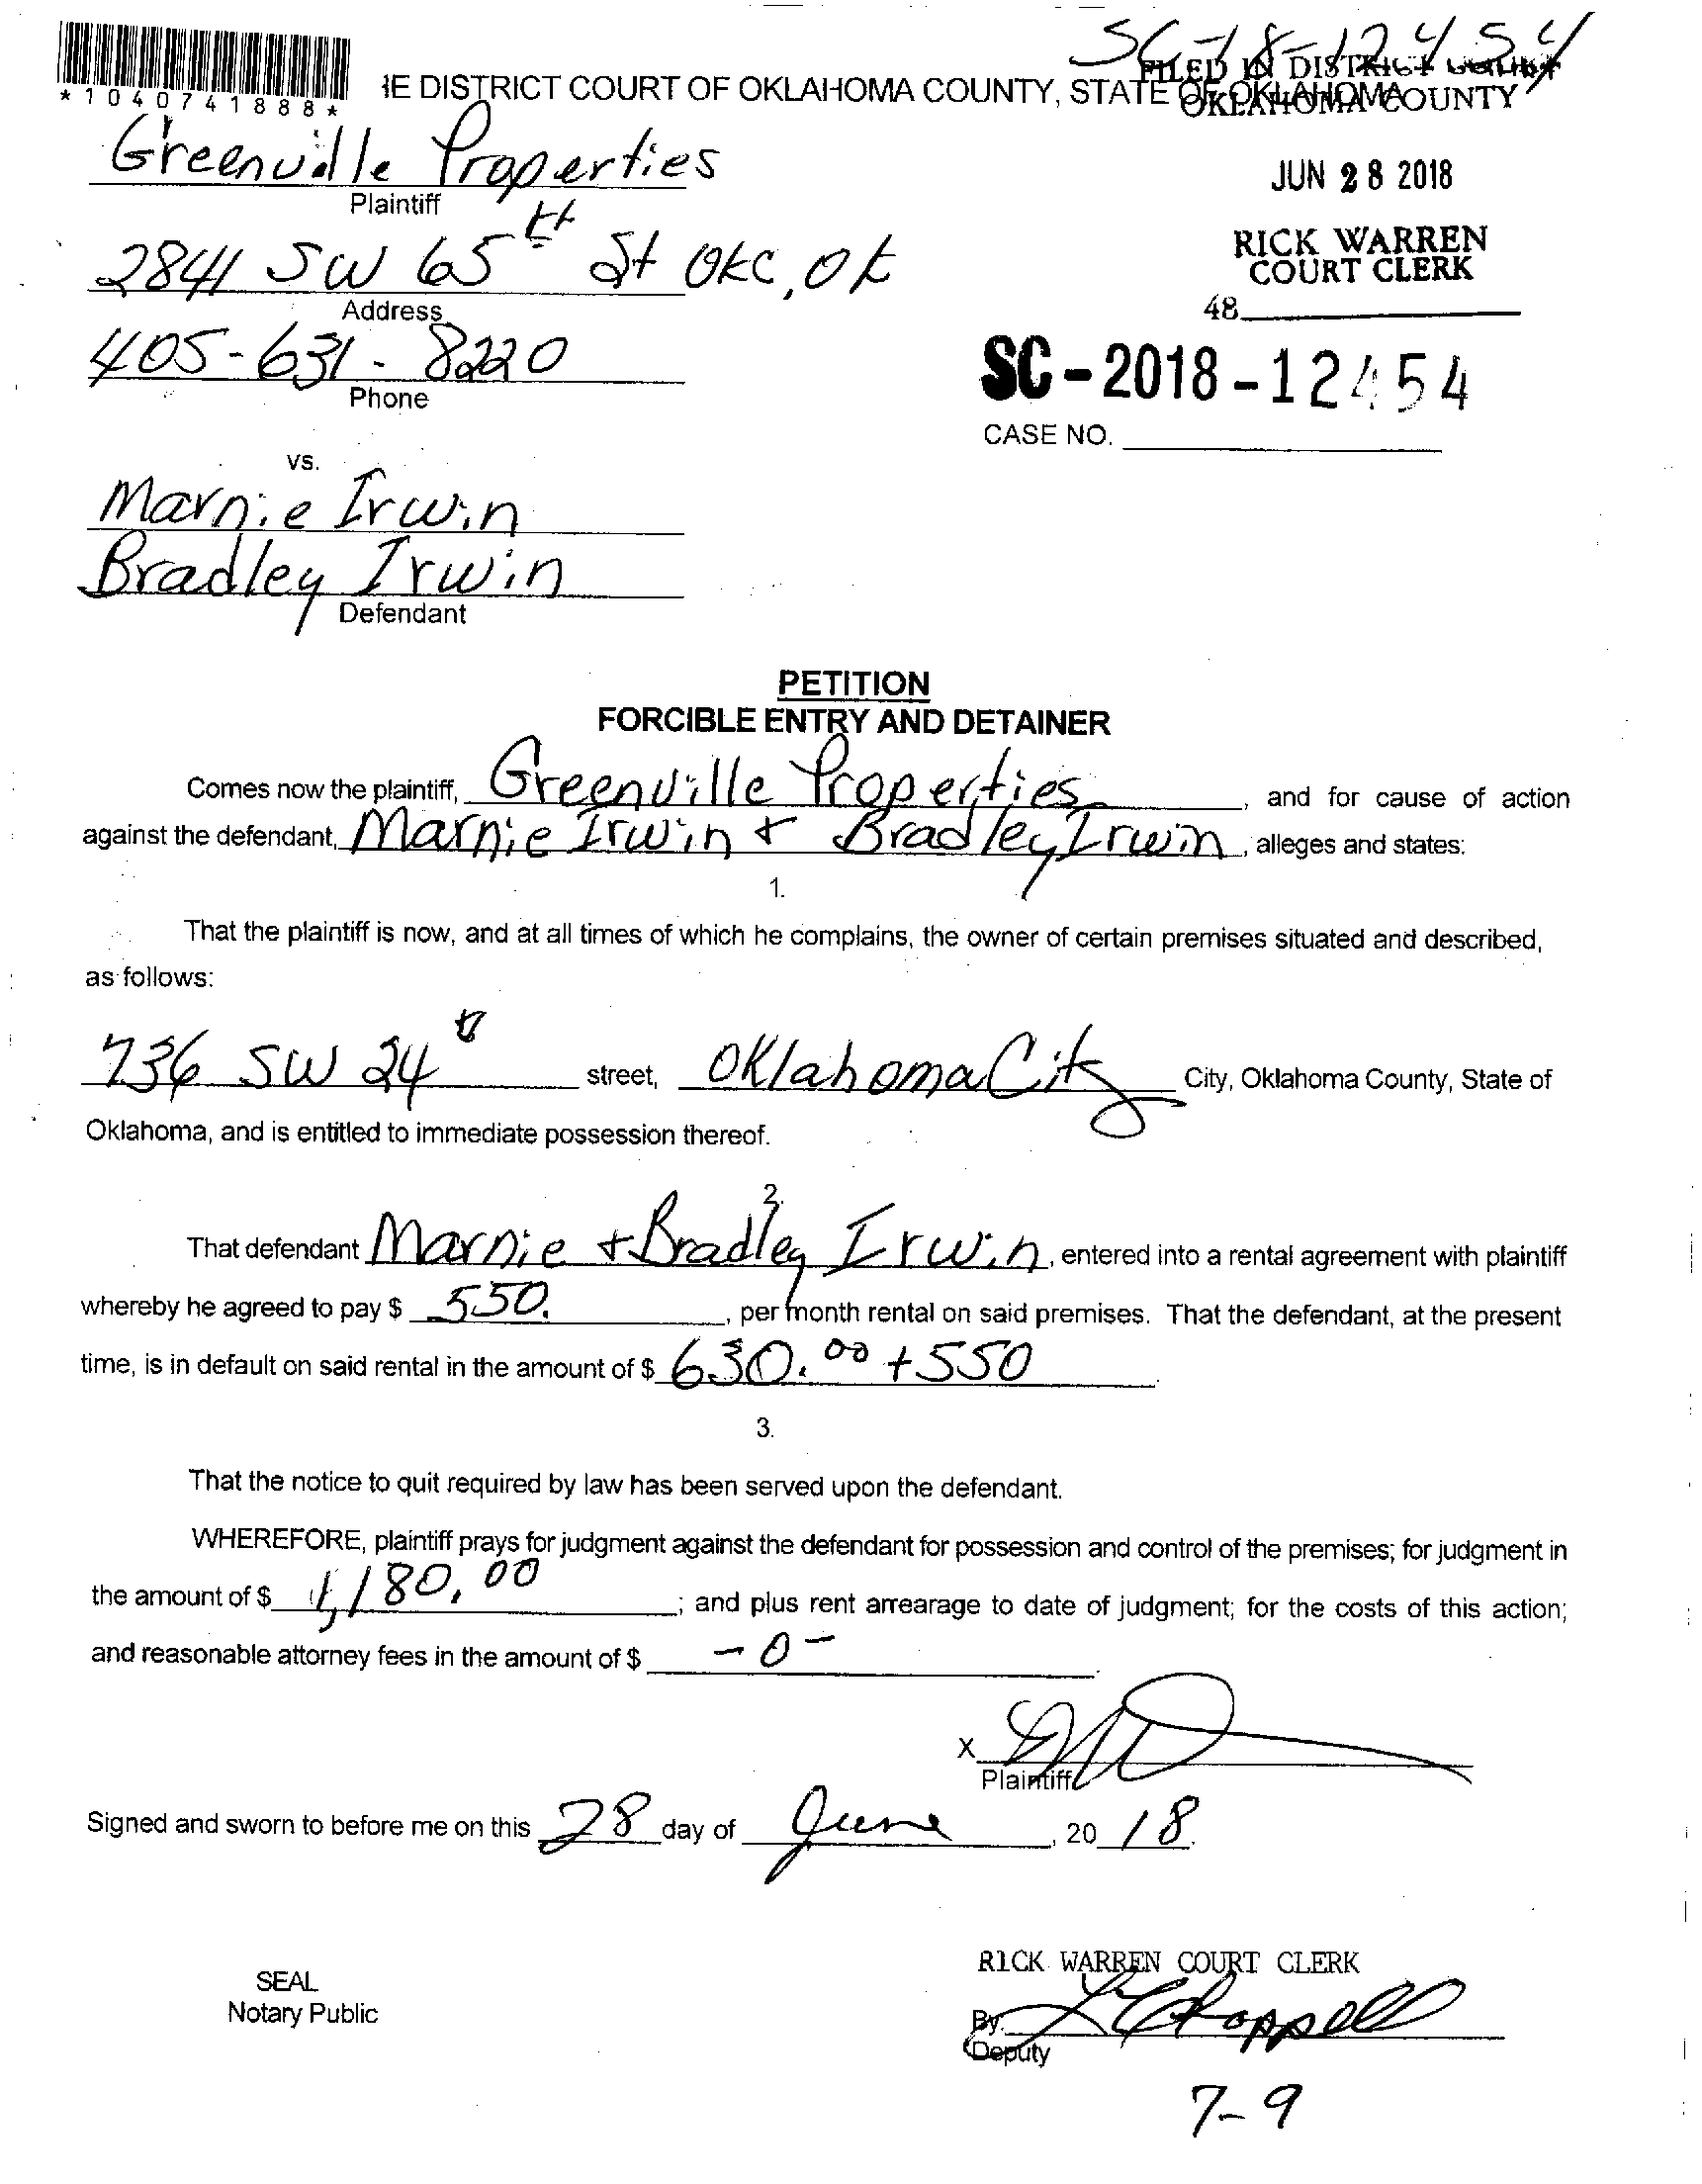 SC-18-12454
*1040741888*
HE DISTRICT COURT OF OKLAHOMA COUNTY, STATE OF OKLAHOMA
FILED IN DISTRICT COURT
OKLAHOMA COUNTY
Greenville Properties
Plaintiff
JUN 28 2018
2841 SW 65th St OKC, OK
Address
RICK WARREN
COURT CLERK
48
405-631-8220
Phone
SC-2018-12454
CASE NO.
vs.
Marnie Irwin
Bradley Irwin
Defendant
PETITION
FORCIBLE ENTRY AND DETAINER
Comes now the plaintiff, Greenville Properties, and for cause of action
against the defendant, Marnie Irwin + Bradley Irwin, alleges and states:
1.
That the plaintiff is now, and at all times of which he complains, the owner of certain premises situated and described,
as follows:
736 SW 24th street, Oklahoma City City, Oklahoma County, State of
Oklahoma, and is entitled to immediate possession thereof.
2.
That defendant Marnie + Bradley Irwin, entered into a rental agreement with plaintiff
whereby he agreed to pay $ 550., per month rental on said premises. That the defendant, at the present
time, is in default on said rental in the amount of $ 630.00 + 550.
3.
That the notice to quit required by law has been served upon the defendant.
WHEREFORE, plaintiff prays for judgment against the defendant for possession and control of the premises; for judgment in
the amount of $ 1,180.00; and plus rent arrearage to date of judgment; for the costs of this action;
and reasonable attorney fees in the amount of $ -0-.
X
Plaintiff
Signed and sworn to before me on this 28 day of June, 20 18.
RICK WARREN COURT CLERK
SEAL
Notary Public
By. Chappell
Deputy
7-9